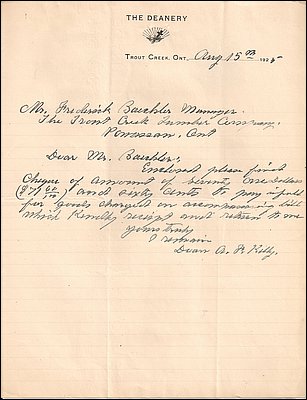 THE DEANERY
TROUT CREEK, ONT. Aug 15th 1925
Mr. Frederick Baechler Manager
The Trout Creek Lumber Company
Powassan, Ont
Dear Mr. Baechler,
Enclosed please find
Cheque of amount of Seventy One Dollars
($71 60/100) and sixty cents to pay in full
for goods charged on accompanying bill
which kindly receipt and return to me
Yours truly
I remain
Dean A. P. Kelly